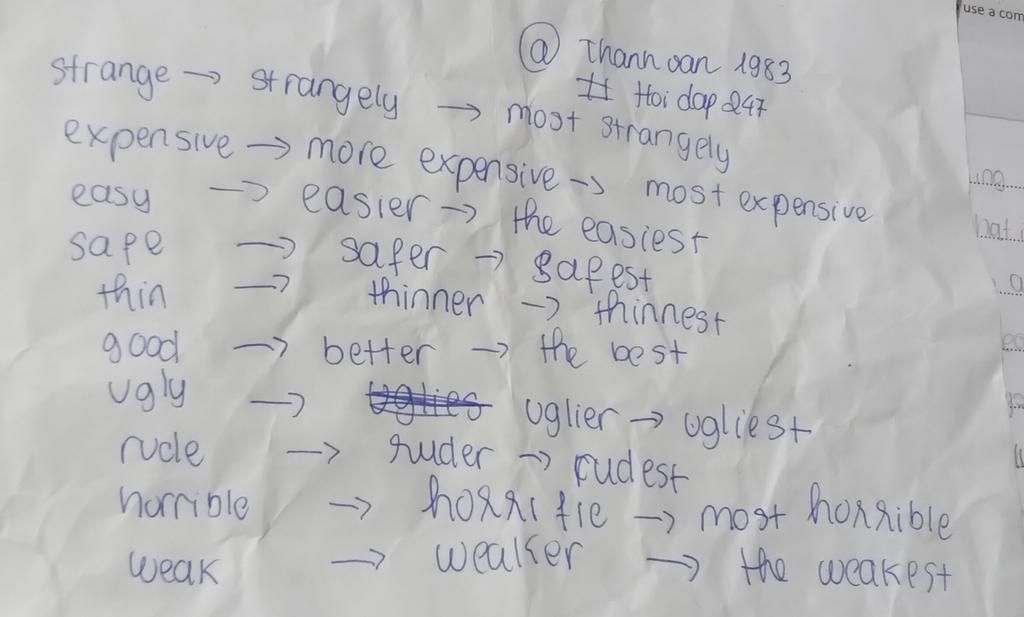 use a com
@ Thannvan 1983
# Hoi dap 247
strange → strangely → most strangely
expensive → more expensive → most expensive
easy → easier → the easiest
safe → safer → safest
thin → thinner → thinnest
good → better → the best
ugly → uglies uglier → ugliest
rude → ruder → rudest
horrible → horrific → most horrible
weak → weaker → the weakest
ing
hat